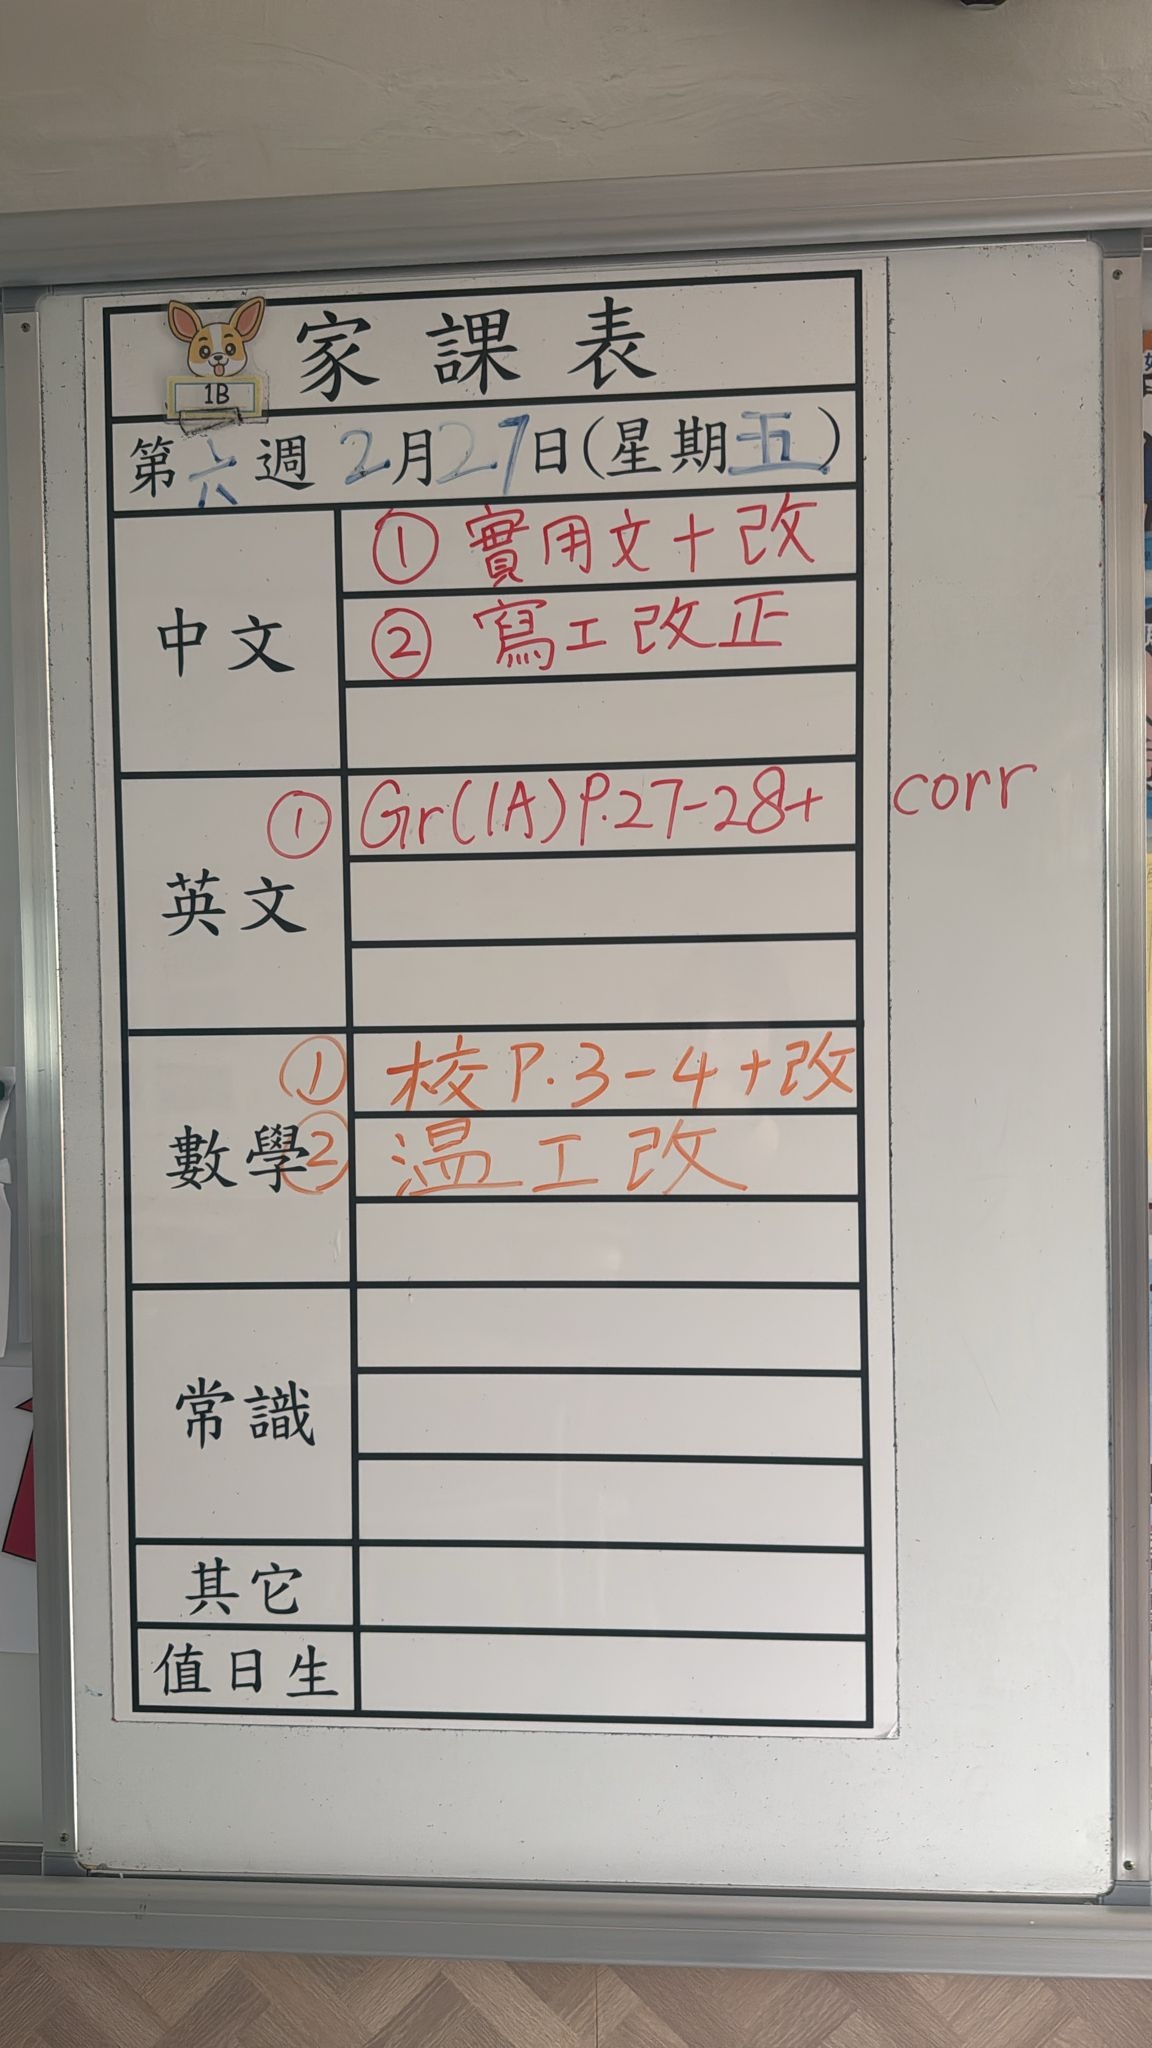 家課表
1B
第六週 2月27日(星期五)
中文
① 實用文+改
② 寫工改正
英文
① Gr(1A) P.27-28+ corr
數學
① 校 P.3-4+改
② 温工改
常識
其它
值日生